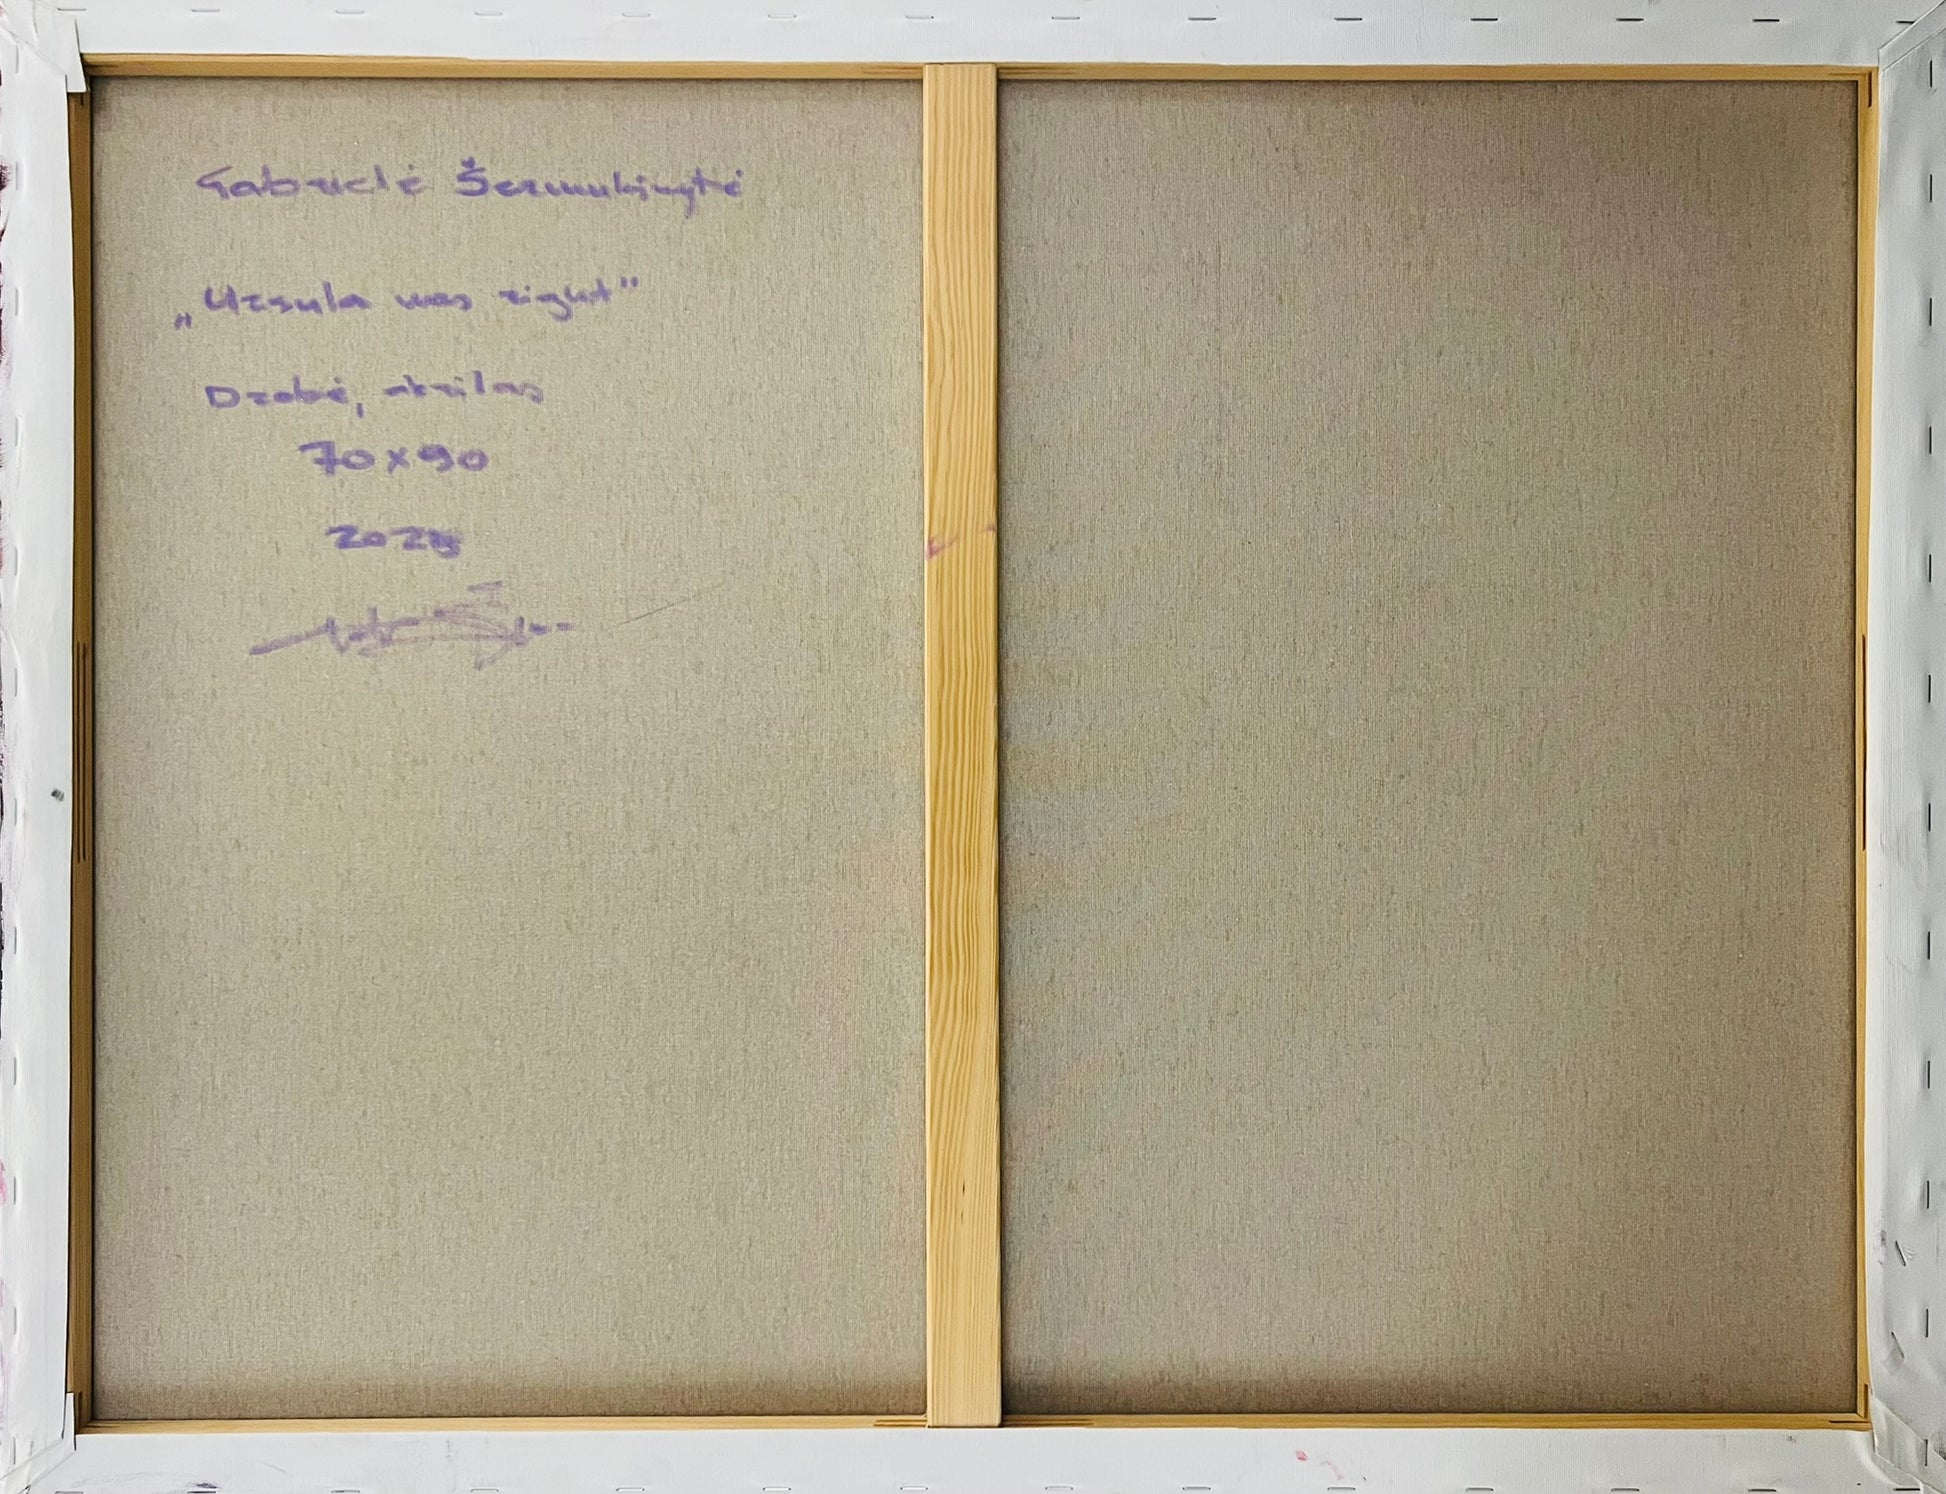 Gabrielė Šermukšnytė
„Ursula was right"
Drobė, akrilas
70x90